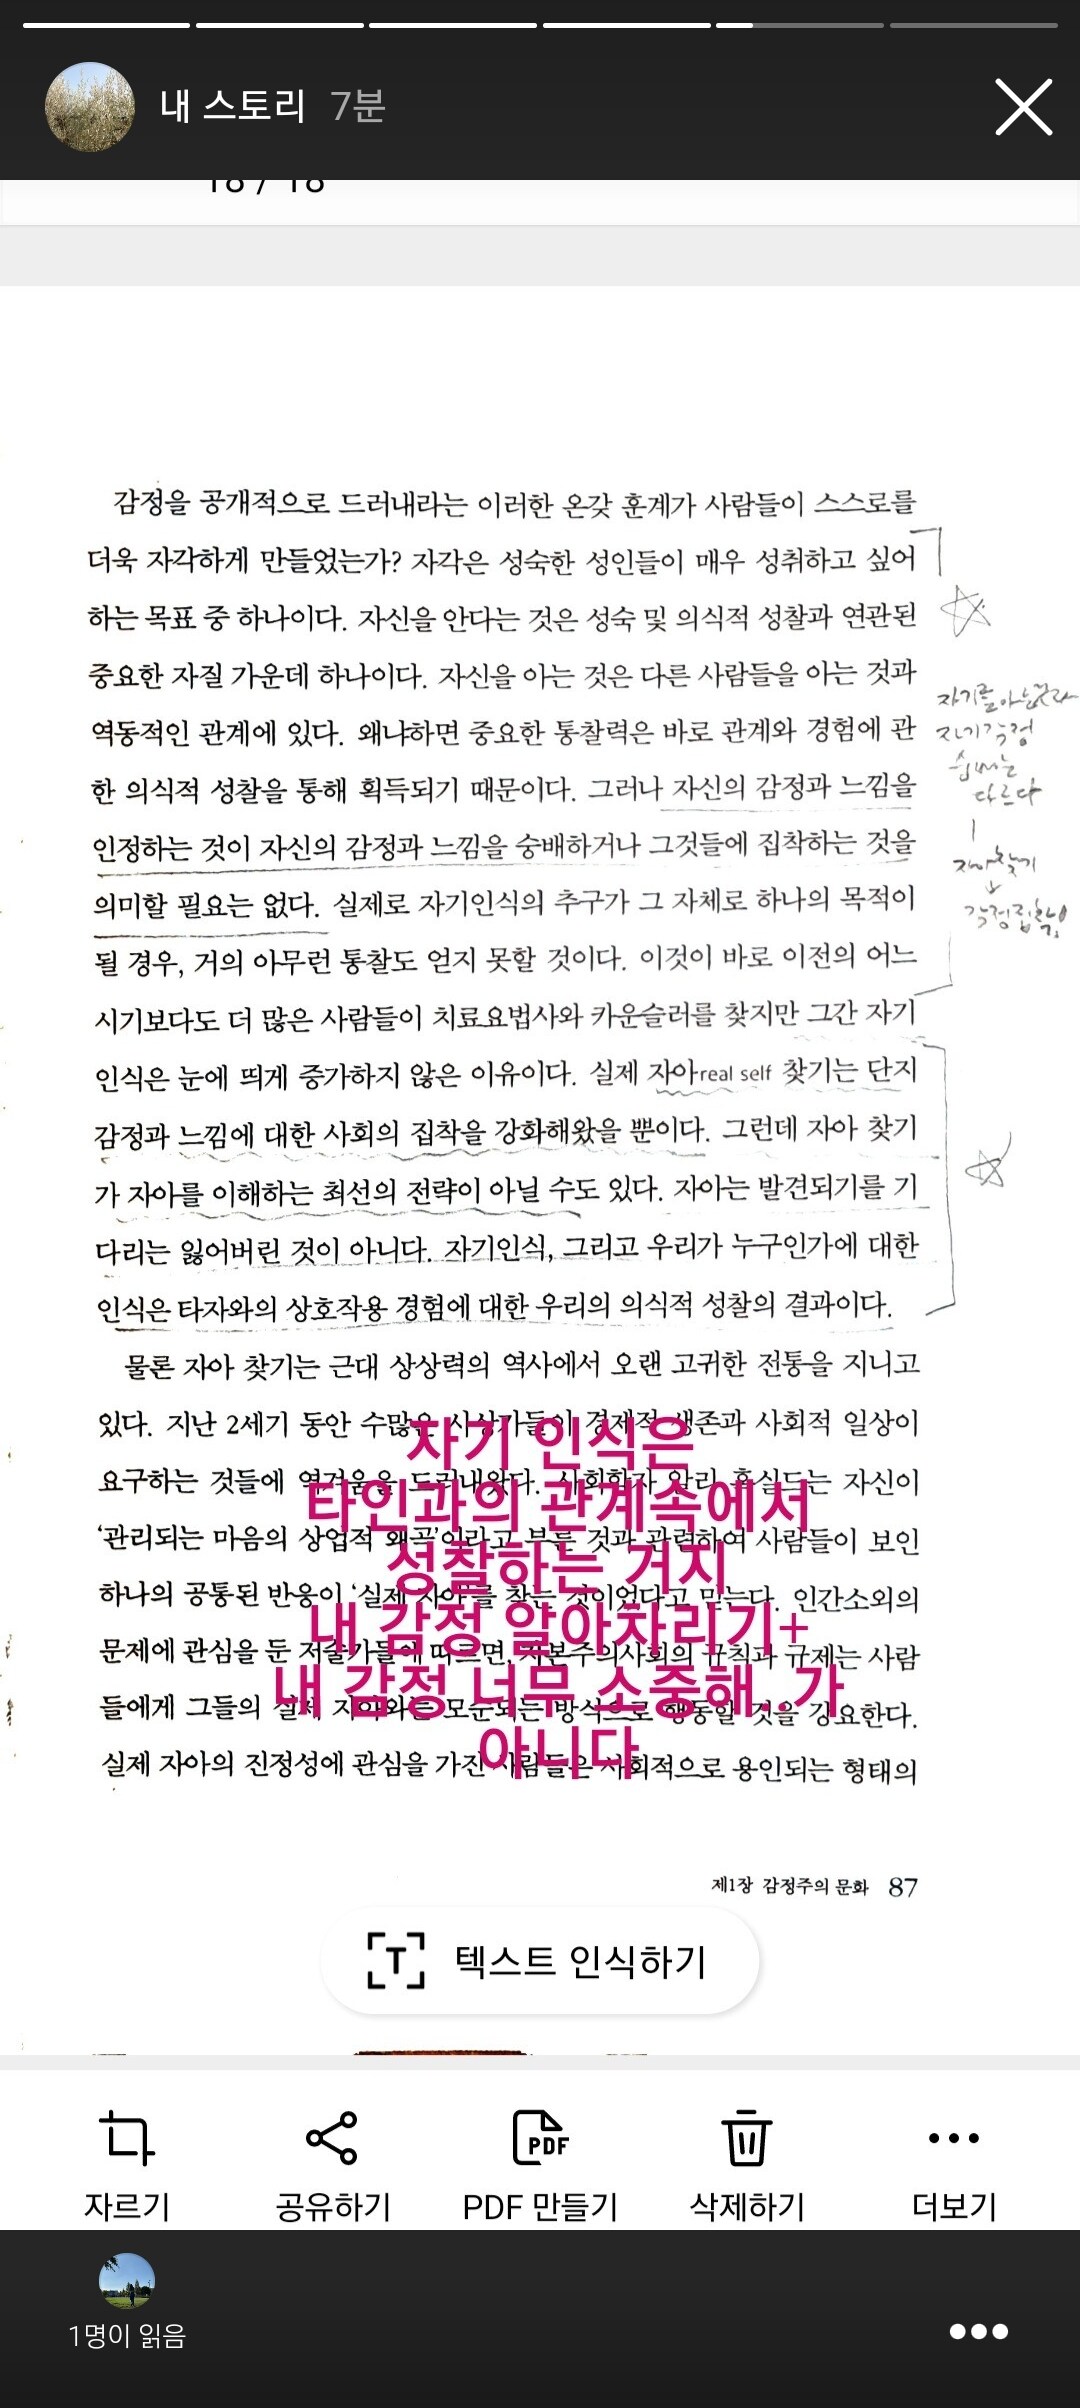 내 스토리 7분
18 / 18
감정을 공개적으로 드러내라는 이러한 온갖 훈계가 사람들이 스스로를
더욱 자각하게 만들었는가? 자각은 성숙한 성인들이 매우 성취하고 싶어
하는 목표 중 하나이다. 자신을 안다는 것은 성숙 및 의식적 성찰과 연관된
중요한 자질 가운데 하나이다. 자신을 아는 것은 다른 사람들을 아는 것과
역동적인 관계에 있다. 왜냐하면 중요한 통찰력은 바로 관계와 경험에 관
한 의식적 성찰을 통해 획득되기 때문이다. 그러나 자신의 감정과 느낌을
인정하는 것이 자신의 감정과 느낌을 숭배하거나 그것들에 집착하는 것을
의미할 필요는 없다. 실제로 자기인식의 추구가 그 자체로 하나의 목적이
될 경우, 거의 아무런 통찰도 얻지 못할 것이다. 이것이 바로 이전의 어느
시기보다도 더 많은 사람들이 치료요법사와 카운슬러를 찾지만 그간 자기
인식은 눈에 띄게 증가하지 않은 이유이다. 실제 자아real self 찾기는 단지
감정과 느낌에 대한 사회의 집착을 강화해왔을 뿐이다. 그런데 자아 찾기
가 자아를 이해하는 최선의 전략이 아닐 수도 있다. 자아는 발견되기를 기
다리는 잃어버린 것이 아니다. 자기인식, 그리고 우리가 누구인가에 대한
인식은 타자와의 상호작용 경험에 대한 우리의 의식적 성찰의 결과이다.
물론 자아 찾기는 근대 상상력의 역사에서 오랜 고귀한 전통을 지니고
있다. 지난 2세기 동안 수많은 사상가들이 경제적 생존과 사회적 일상이
요구하는 것들에 역겨움을 드러내왔다. 사회학자 알리 혹실드는 자신이
'관리되는 마음의 상업적 왜곡'이라고 부른 것과 관련하여 사람들이 보인
하나의 공통된 반응이 '실제 자아'를 찾는 것이었다고 믿는다. 인간소외의
문제에 관심을 둔 저술가들에 따르면, 자본주의사회의 규칙과 규제는 사람
들에게 그들의 실제 자아와는 모순되는 방식으로 행동할 것을 강요한다.
실제 자아의 진정성에 관심을 가진 사람들은 사회적으로 용인되는 형태의
자기를 아는것과
자기감정
숭배는
다르다
자아찾기
감정집착
자기 인식은
타인과의 관계속에서
성찰하는 거지
내 감정 알아차리기+
내 감정 너무 소중해..가
아니다
제1장 감정주의 문화 87
텍스트 인식하기
자르기 공유하기 PDF 만들기 삭제하기 더보기
1명이 읽음